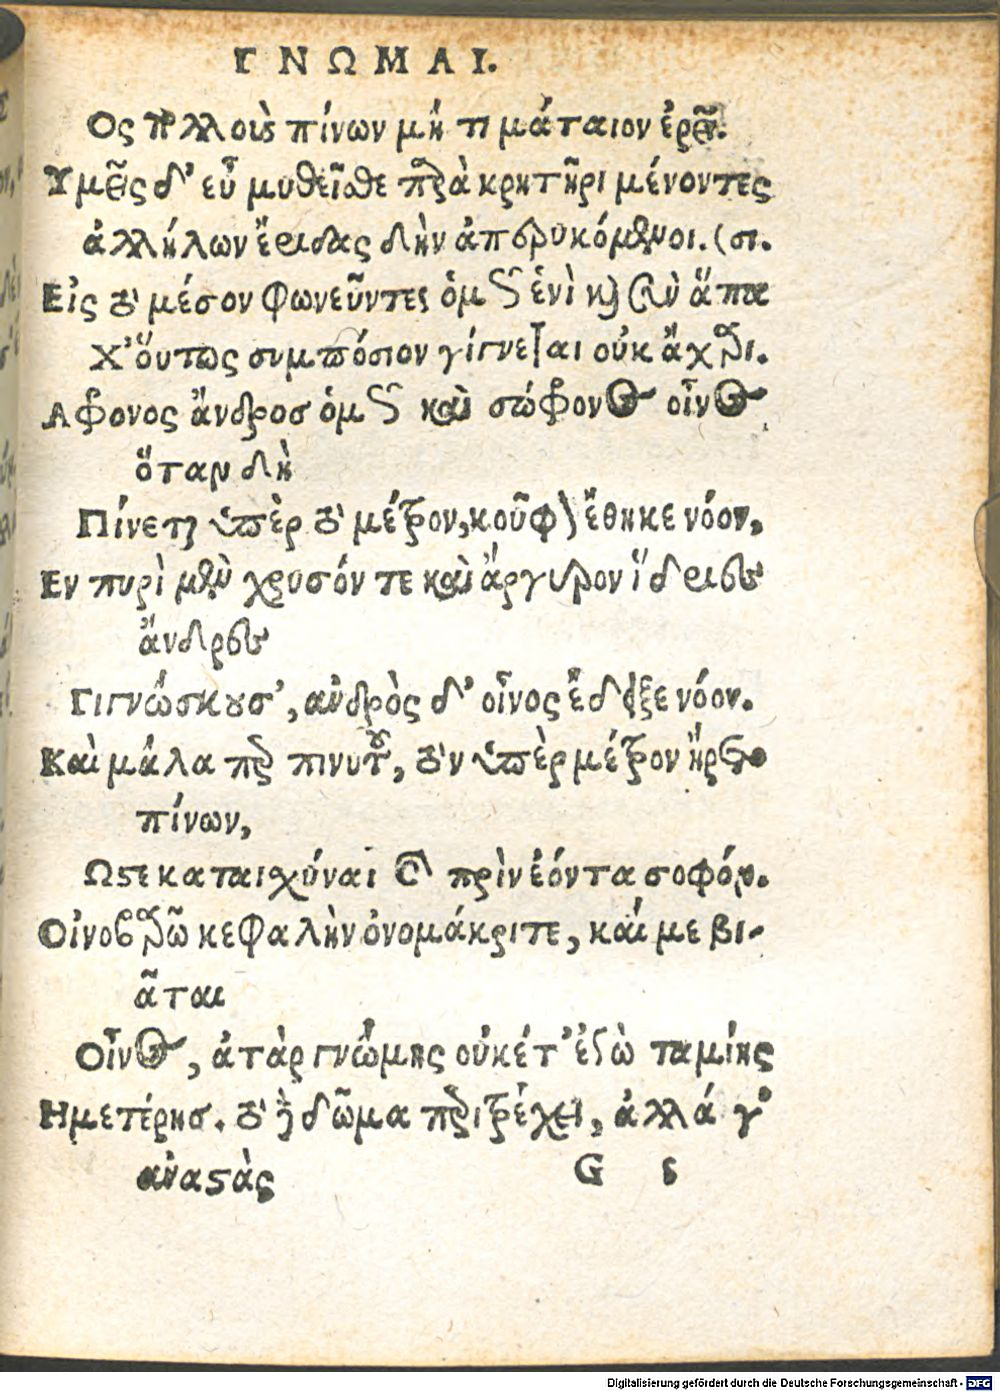 ΓΝΩΜΑΙ.
Ος πολλοὺς πίνων μή τι μάταιον ἐρεῖ.
Υμεῖς δ' εὖ μυθεῖσθε παρὰ κρητῆρι μένοντες
ἀλλήλων ἔριδας δὴν ἀπερυκόμενοι. (σι.
Εἰς τὸ μέσον φωνεῦντες ὁμῶς ἑνὶ καὶ σὺν ἅπα
Χ' οὕτως συμπόσιον γίγνεται οὐκ ἄχαρι.
Αφρονος ἄνδροσ ὁμῶς καὶ σώφρονος οἶνος
ὅταν δὴ
Πίνεται ὑπὲρ τὸ μέτρον, κοῦφον ἔθηκε νόον,
Εν πυρὶ μὲν χρυσόν τε καὶ ἄργυρον ἴδριες
ἄνδρες
Γιγνώσκουσ', ἀνδρὸς δ' οἶνος ἔδειξε νόον.
Καὶ μάλα περ πινυτοῦ, τὸν ὑπὲρ μέτρον ἤρατο
πίνων,
Ωστε καταιχύναι καὶ πρὶν ἐόντα σοφόν.
Οἰνοβαρῶ κεφαλὴν ὀνομάκριτε, καί με βι-
ᾶται
Οἶνος, ἀτὰρ γνώμης οὐκέτ' ἐδὼ ταμίης
Ημετέρησ. τὸ δὲ δῶμα περιτρέχει, ἀλλά γ'
ἀναστὰς G 5
Digitalisierung gefördert durch die Deutsche Forschungsgemeinschaft - DFG